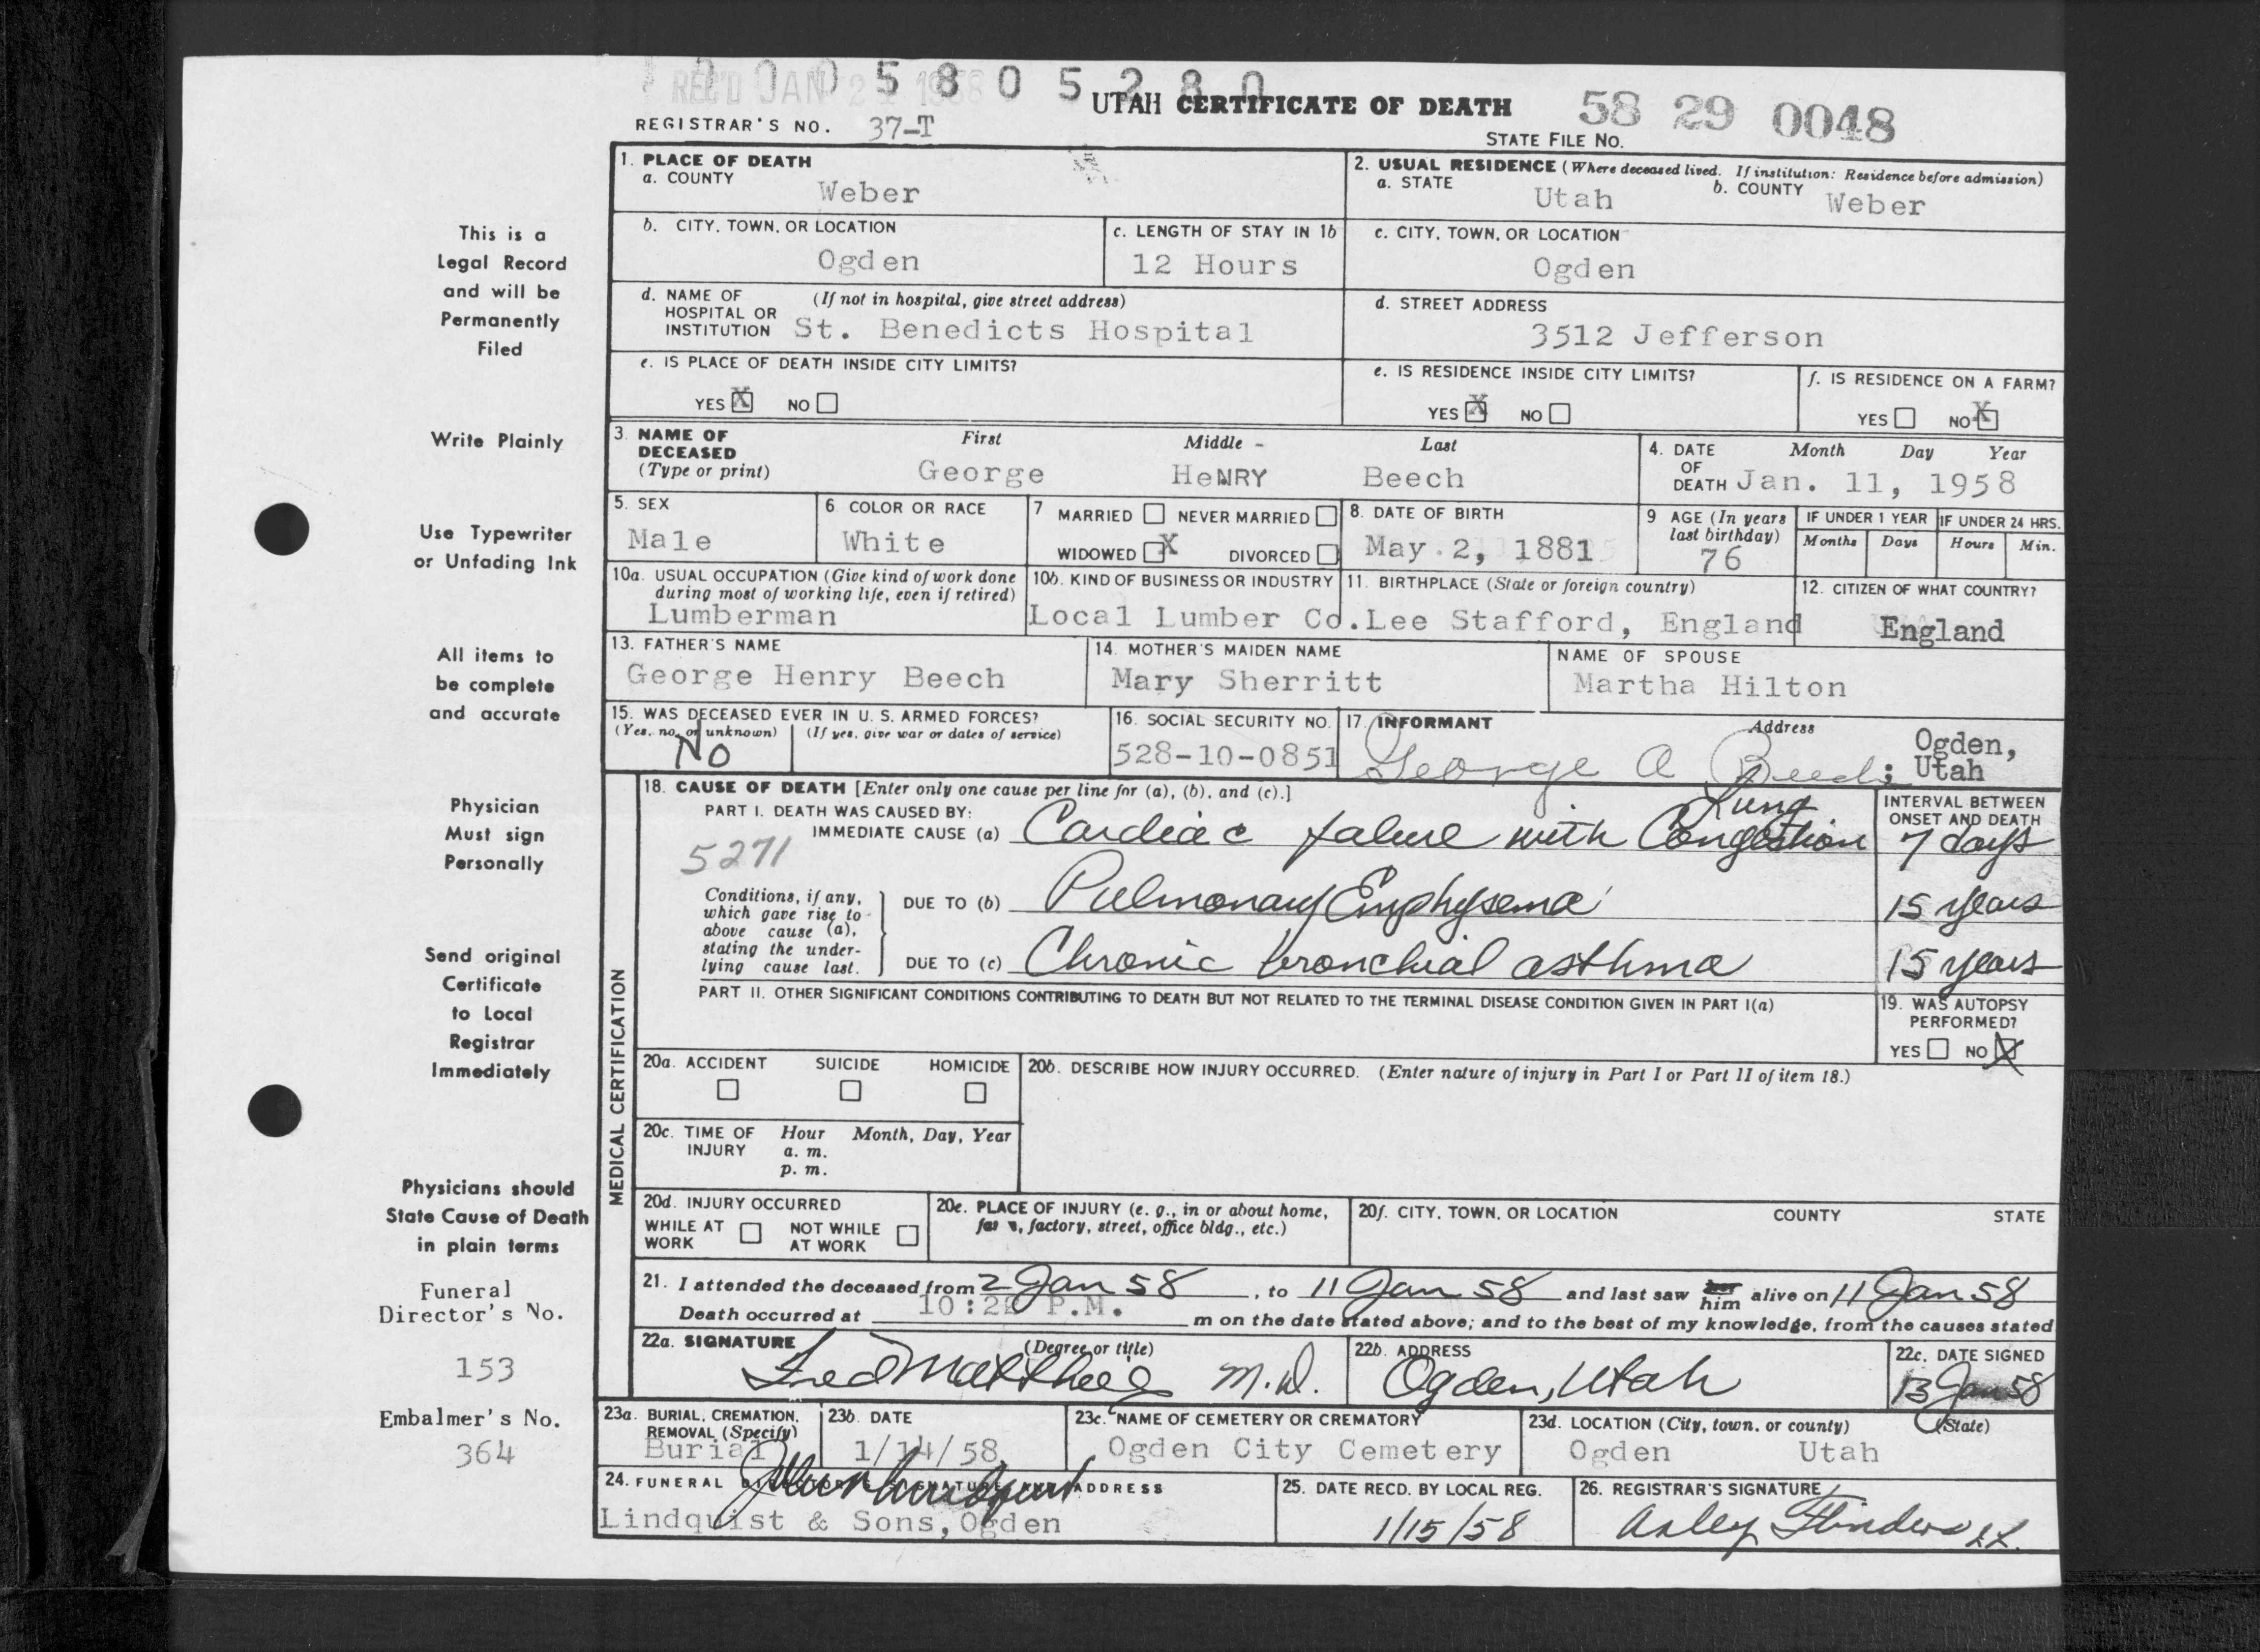 2005805280
REC'D JAN 2 1958
UTAH CERTIFICATE OF DEATH
58 29 0048
REGISTRAR'S NO. 37-T
STATE FILE NO.
This is a
Legal Record
and will be
Permanently
Filed
Write Plainly
Use Typewriter
or Unfading Ink
All items to
be complete
and accurate
Physician
Must sign
Personally
Send original
Certificate
to Local
Registrar
Immediately
Physicians should
State Cause of Death
in plain terms
Funeral
Director's No.
153
Embalmer's No.
364
1. PLACE OF DEATH
a. COUNTY
Weber
2. USUAL RESIDENCE (Where deceased lived. If institution: Residence before admission)
a. STATE Utah b. COUNTY Weber
b. CITY, TOWN, OR LOCATION
Ogden
c. LENGTH OF STAY IN 1b
12 Hours
c. CITY, TOWN, OR LOCATION
Ogden
d. NAME OF (If not in hospital, give street address)
HOSPITAL OR
INSTITUTION St. Benedicts Hospital
d. STREET ADDRESS
3512 Jefferson
e. IS PLACE OF DEATH INSIDE CITY LIMITS?
YES X NO
e. IS RESIDENCE INSIDE CITY LIMITS?
YES X NO
f. IS RESIDENCE ON A FARM?
YES NO X
3. NAME OF DECEASED (Type or print)
First Middle Last
George HeNRY Beech
4. DATE OF DEATH
Month Day Year
Jan. 11, 1958
5. SEX
Male
6. COLOR OR RACE
White
7 MARRIED NEVER MARRIED
WIDOWED X DIVORCED
8. DATE OF BIRTH
May 2, 1881
9 AGE (In years
last birthday)
76
IF UNDER 1 YEAR IF UNDER 24 HRS.
Months Days Hours Min.
10a. USUAL OCCUPATION (Give kind of work done
during most of working life, even if retired)
Lumberman
10b. KIND OF BUSINESS OR INDUSTRY
Local Lumber Co.
11. BIRTHPLACE (State or foreign country)
Lee Stafford, England
12. CITIZEN OF WHAT COUNTRY?
England
13. FATHER'S NAME
George Henry Beech
14. MOTHER'S MAIDEN NAME
Mary Sherritt
NAME OF SPOUSE
Martha Hilton
15. WAS DECEASED EVER IN U. S. ARMED FORCES?
(Yes, no, or unknown) (If yes, give war or dates of service)
No
16. SOCIAL SECURITY NO.
528-10-0851
17. INFORMANT Address
George A Beech; Ogden,
Utah
MEDICAL CERTIFICATION
18. CAUSE OF DEATH [Enter only one cause per line for (a), (b), and (c).]
PART I. DEATH WAS CAUSED BY:
IMMEDIATE CAUSE (a) Cardiac falure with Lung Congestion
5271
INTERVAL BETWEEN
ONSET AND DEATH
7 days
Conditions, if any,
which gave rise to
above cause (a),
stating the under-
lying cause last.
DUE TO (b) Pulmonary Emphysema 15 years
DUE TO (c) Chronic bronchial asthma 15 years
PART II. OTHER SIGNIFICANT CONDITIONS CONTRIBUTING TO DEATH BUT NOT RELATED TO THE TERMINAL DISEASE CONDITION GIVEN IN PART I(a)
19. WAS AUTOPSY
PERFORMED?
YES NO X
20a. ACCIDENT SUICIDE HOMICIDE
20b. DESCRIBE HOW INJURY OCCURRED. (Enter nature of injury in Part I or Part II of item 18.)
20c. TIME OF INJURY Hour Month, Day, Year
a. m.
p. m.
20d. INJURY OCCURRED
WHILE AT WORK NOT WHILE AT WORK
20e. PLACE OF INJURY (e. g., in or about home,
farm, factory, street, office bldg., etc.)
20f. CITY, TOWN, OR LOCATION COUNTY STATE
21. I attended the deceased from 2 Jan 58, to 11 Jan 58 and last saw her him alive on 11 Jan 58
Death occurred at P.M. m on the date stated above; and to the best of my knowledge, from the causes stated
22a. SIGNATURE (Degree or title)
Fred Matthews M.D.
22b. ADDRESS
Ogden, Utah
22c. DATE SIGNED
13 Jan 58
23a. BURIAL, CREMATION,
REMOVAL (Specify)
Burial
23b. DATE
1/14/58
23c. NAME OF CEMETERY OR CREMATORY
Ogden City Cemetery
23d. LOCATION (City, town, or county) (State)
Ogden Utah
24. FUNERAL DIRECTOR'S SIGNATURE ADDRESS
Lindquist & Sons, Ogden
25. DATE RECD. BY LOCAL REG.
1/15/58
26. REGISTRAR'S SIGNATURE